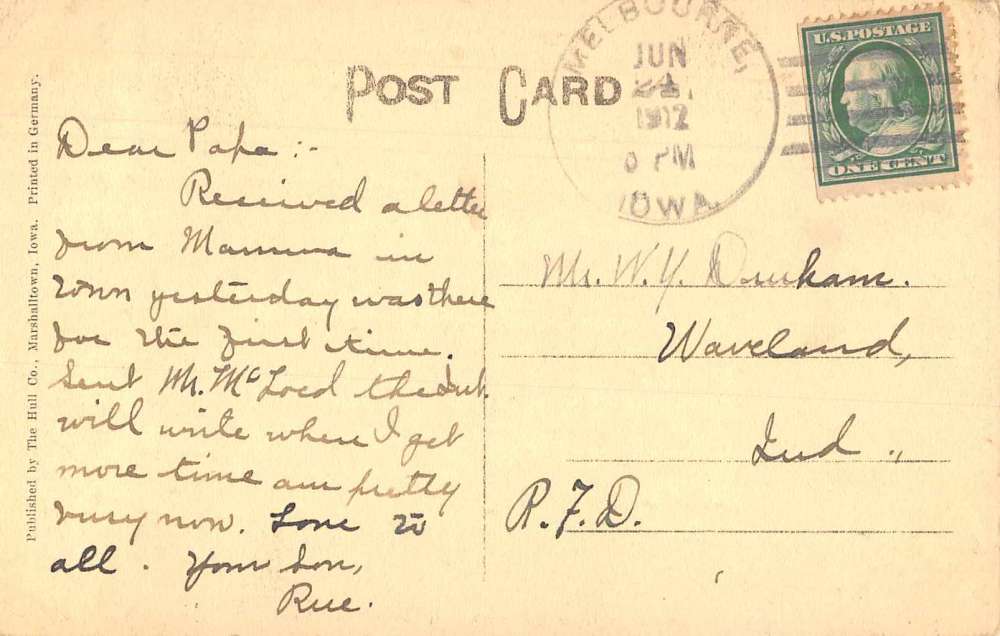 POST CARD
MELBOURNE,
JUN
1912
PM
IOWA
U.S. POSTAGE
ONE CENT
Published by The Hull Co., Marshalltown, Iowa. Printed in Germany.
Dear Papa :-
Received a letter
from Mamma in
town yesterday was there
for the first time.
Sent Mr. McLoed the
will write when I get
more time am pretty
busy now. Love to
all. Your Son,
Rue.
Mr. W. Y. Durham.
Waveland,
Ind.,
R.F.D.